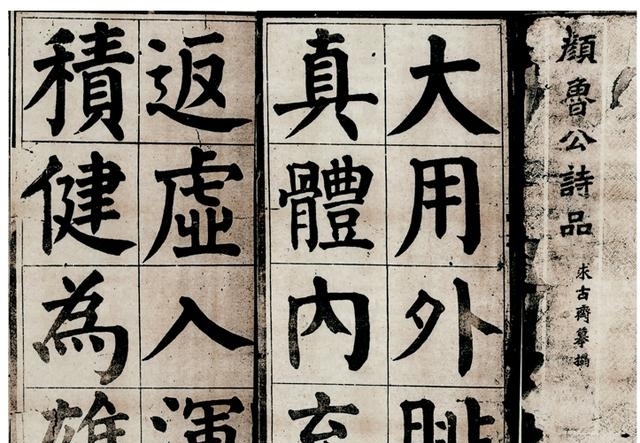 顏魯公詩品
求古齋摹搨
大用外腓
真體內充
返虛入渾
積健為雄